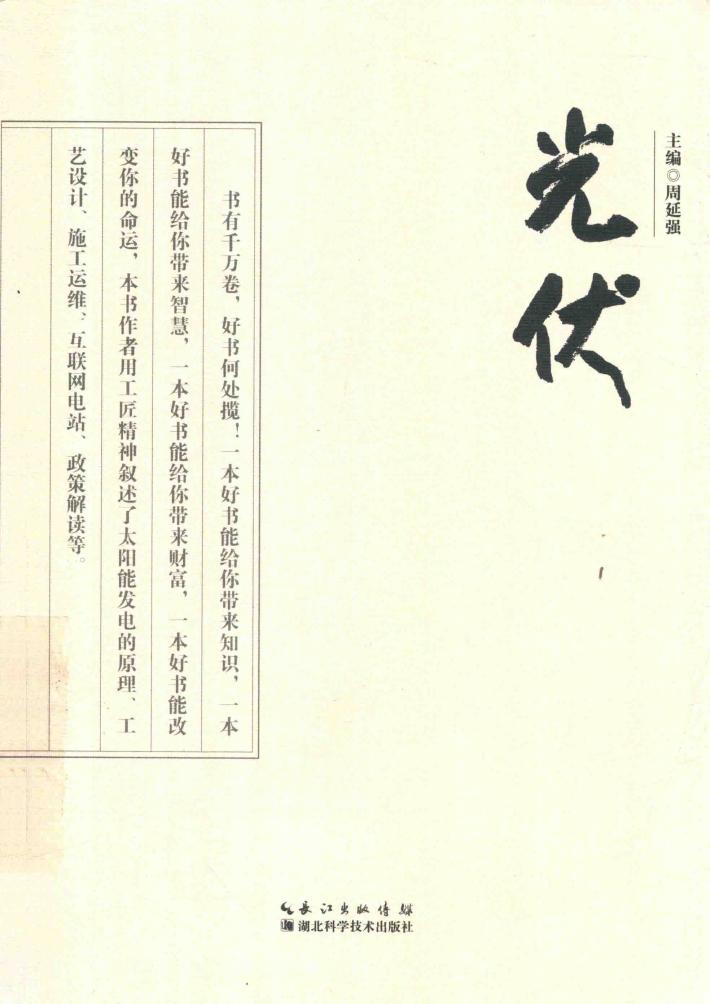 主编◎周延强
光伏
书有千万卷，好书何处揽！一本好书能给你带来知识，一本
好书能给你带来智慧，一本好书能给你带来财富，一本好书能改
变你的命运，本书作者用工匠精神叙述了太阳能发电的原理、工
艺设计、施工运维、互联网电站、政策解读等。
长江出版传媒
湖北科学技术出版社